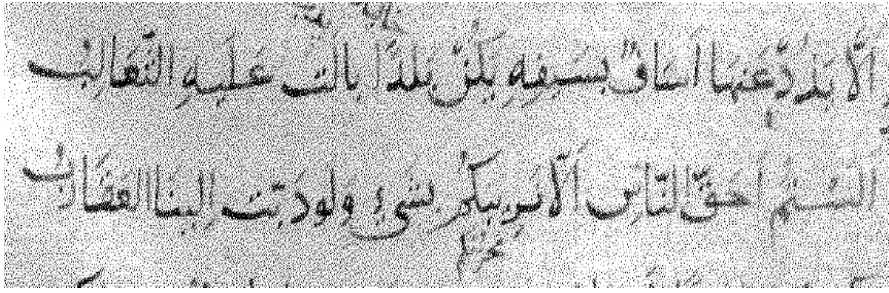 ألّا يذد عنها أساف بسيفه يكن بلدًا بالت عليه الثعالب
ألستم أحق الناس ألا يريبكم بشيء ولو دبّت إلينا العقارب